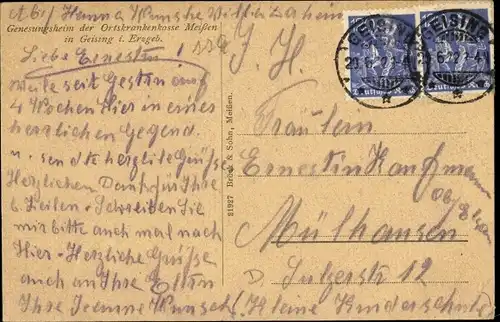 Genesungsheim der Ortskrankenkasse Meißen
in Geising i. Erzgeb.
Liebe Ernestin!
Weile seit Gestern auf
4 Wochen Hier in eines
herrlichen Gegend.
u. sende herzlite Grüße
Herzlichen Dank für Ihre
l. Zeilen - Schreiben Sie
mir bitte auch mal nach
Hier - Herzliche Grüße
auch an Ihre Eltern
Ihre Jeanne Wunsch
21927 Brück & Sohn, Meißen.
GEISING
GEISING
Fräulein
Ernestin Kaufmann
Mülhausen
D. Sulzerstr 12
(Kleine Kinderschule)